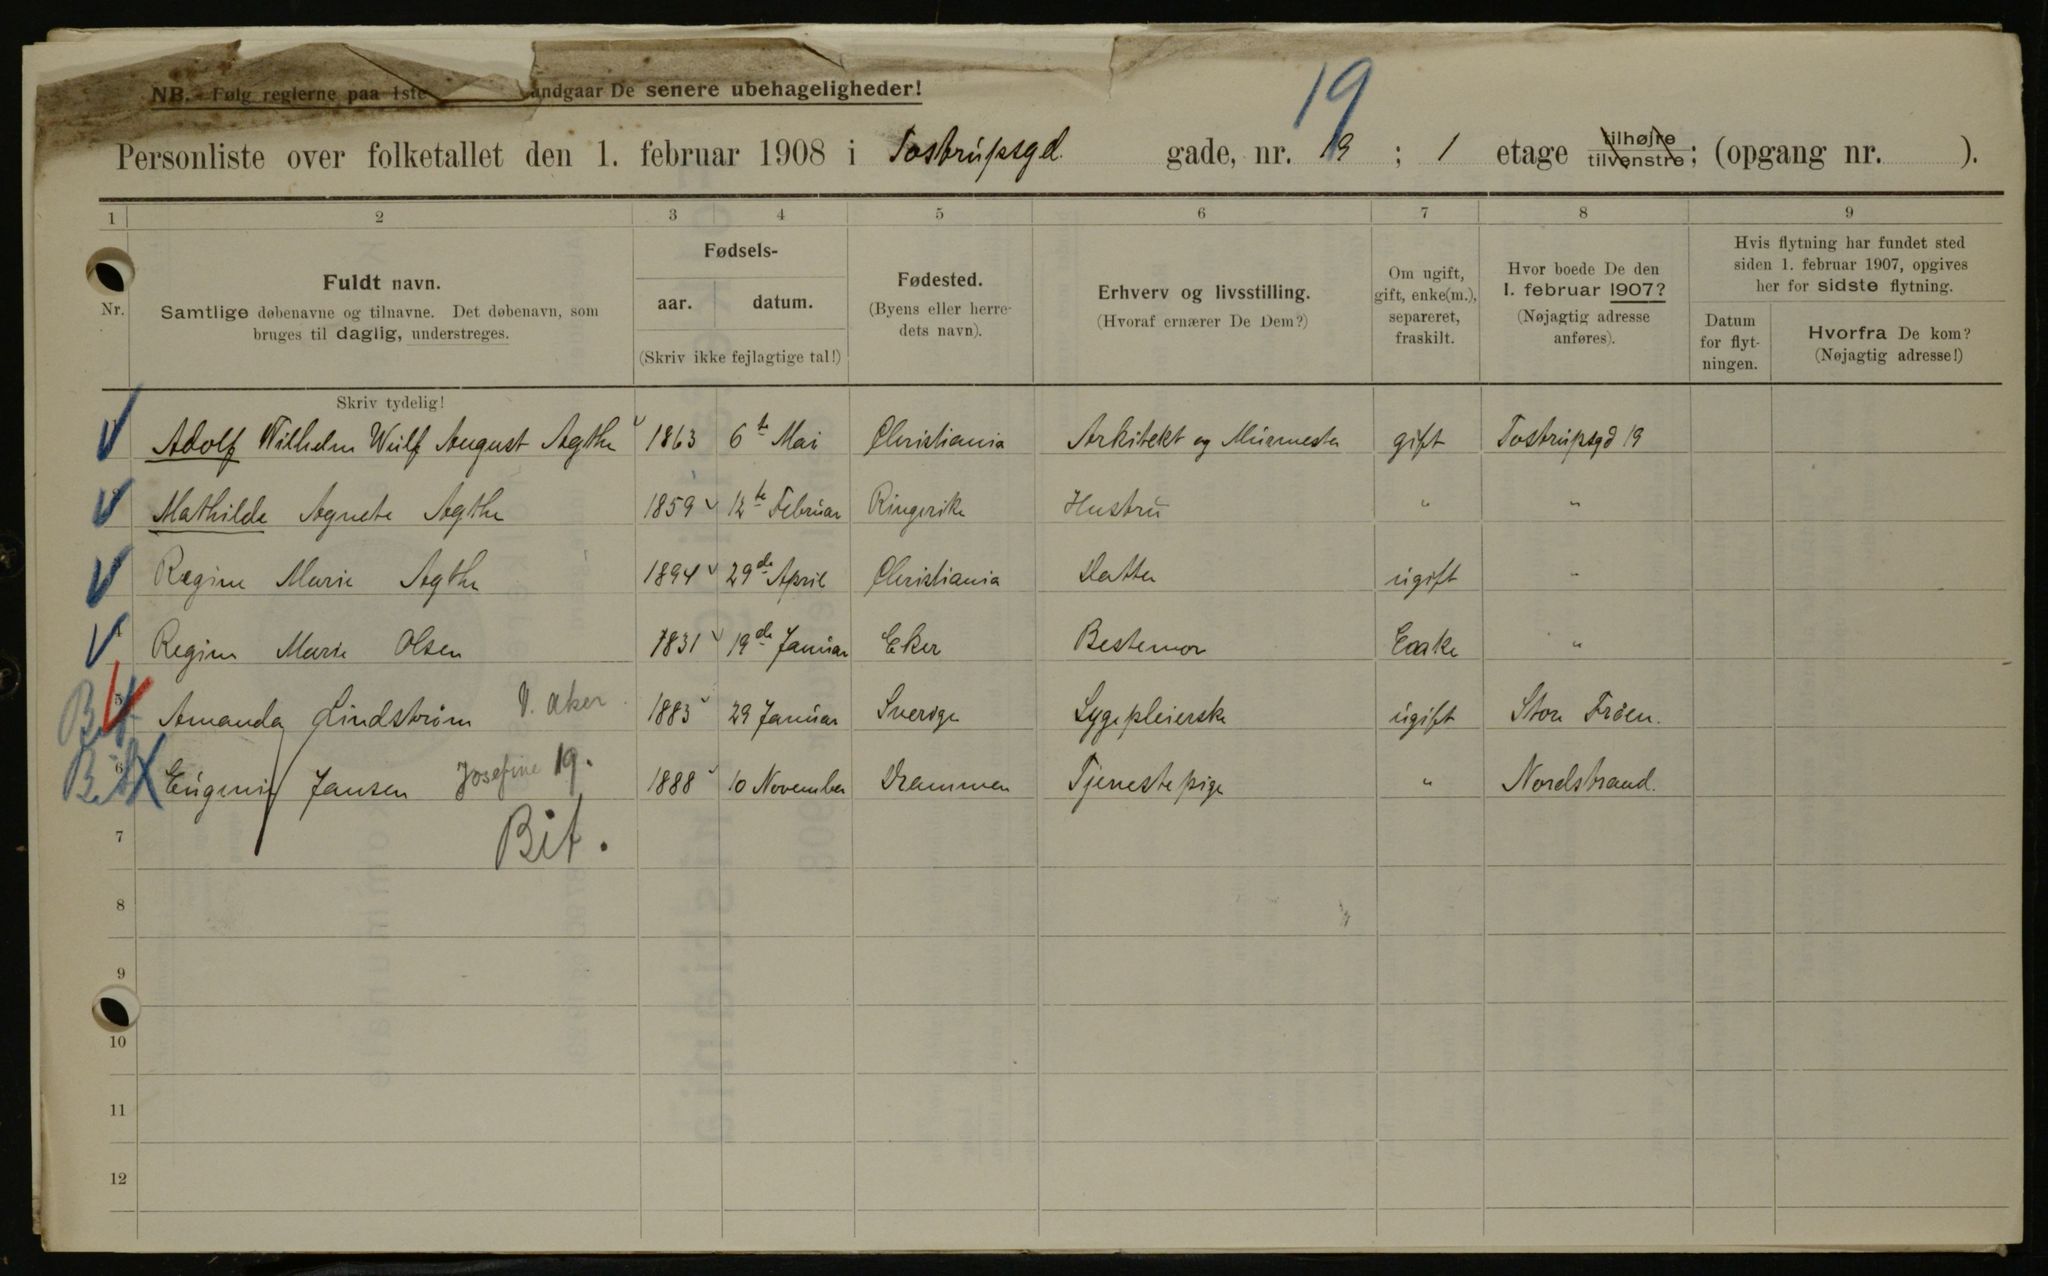 NB. Følg reglerne paa 1ste undgaar De senere ubehageligheder!
19
Personliste over folketallet den 1. februar 1908 i Tostrupsgd. gade, nr. 19 ; 1 etage tilhøjre tilvenstre ; (opgang nr. ).
1 2 3 4 5 6 7 8 9
Nr.
Fuldt navn.
Samtlige døbenavne og tilnavne. Det døbenavn, som
bruges til daglig, understreges.
Fødsels-
aar. datum.
(Skriv ikke fejlagtige tal!)
Fødested.
(Byens eller herre-
dets navn).
Erhverv og livsstilling.
(Hvoraf ernærer De Dem?)
Om ugift,
gift, enke(m.),
separeret,
fraskilt.
Hvor boede De den
1. februar 1907?
(Nøjagtig adresse
anføres).
Hvis flytning har fundet sted
siden 1. februar 1907, opgives
her for sidste flytning.
Datum
for flyt-
ningen.
Hvorfra De kom?
(Nøjagtig adresse!)
Skriv tydelig!
Adolf Wilhelm Wulf August Agthe 1863 6te Mai Christiania Arkitekt og Murmester gift Tostrupsgd 19
Mathilde Agnete Agthe 1859 12te Februar Ringerike Hustru " "
Regine Marie Agthe 1894 29de April Christiania Datter ugift "
4 Regine Marie Olsen 1831 19de Januar Eker Bestemor Enke "
Bit 5 Amanda Lindstrøm V. Aker. 1883 29 Januar Sverige Sygepleierske ugift Store Frøen.
Bit 6 Eugenie Jansen Josefine 19. 1888 10 November Drammen Tjenestepige " Nordstrand.
7 Bit.
8
9
10
11
12